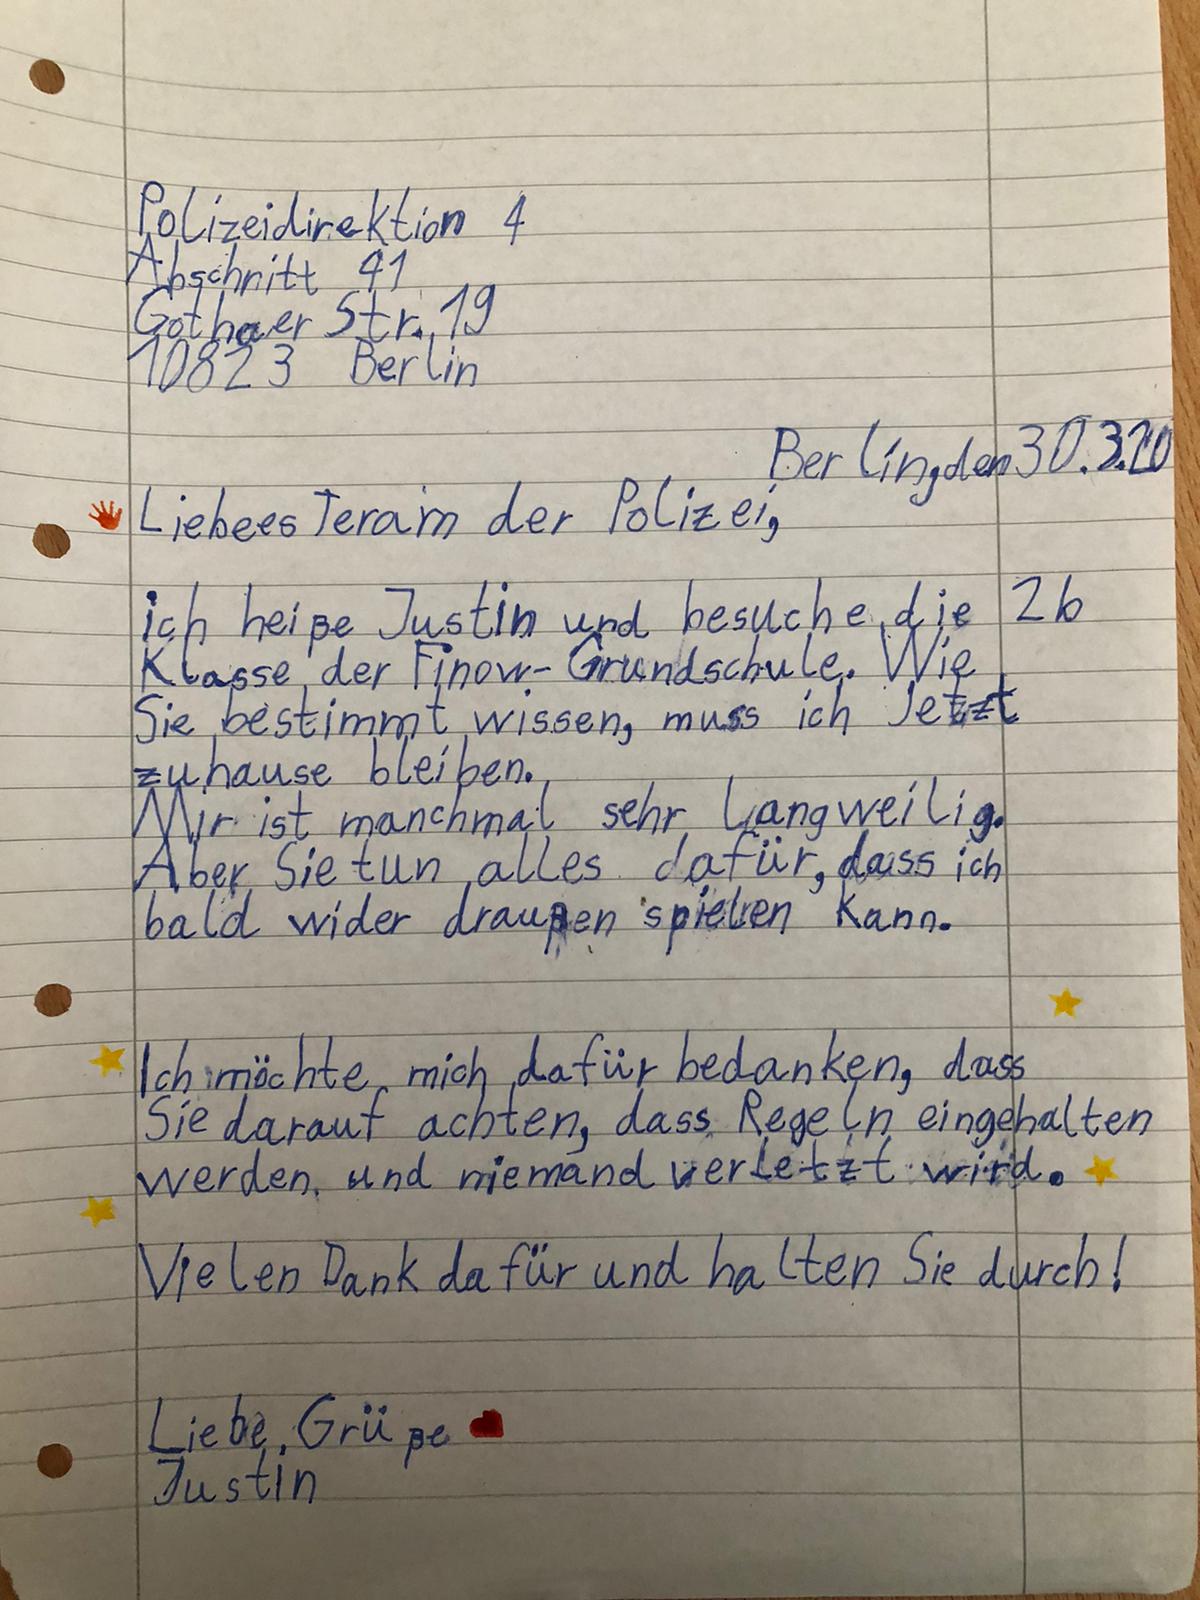 Polizeidirektion 4
Abschnitt 41
Gothaer Str. 19
10823 Berlin
Berlin, den 30.3.20
Liebees Teram der Polizei,
ich heiße Justin und besuche die 2b
Klasse der Finow-Grundschule. Wie
Sie bestimmt wissen, muss ich Jetzt
zuhause bleiben.
Mir ist manchmal sehr Langweilig.
Aber Sie tun alles dafür, dass ich
bald wider draußen spielen kann.
Ich möchte mich dafür bedanken, dass
Sie darauf achten, dass Regeln eingehalten
werden und niemand verletzt wird.
Vielen Dank dafür und halten Sie durch!
Liebe Grüße
Justin